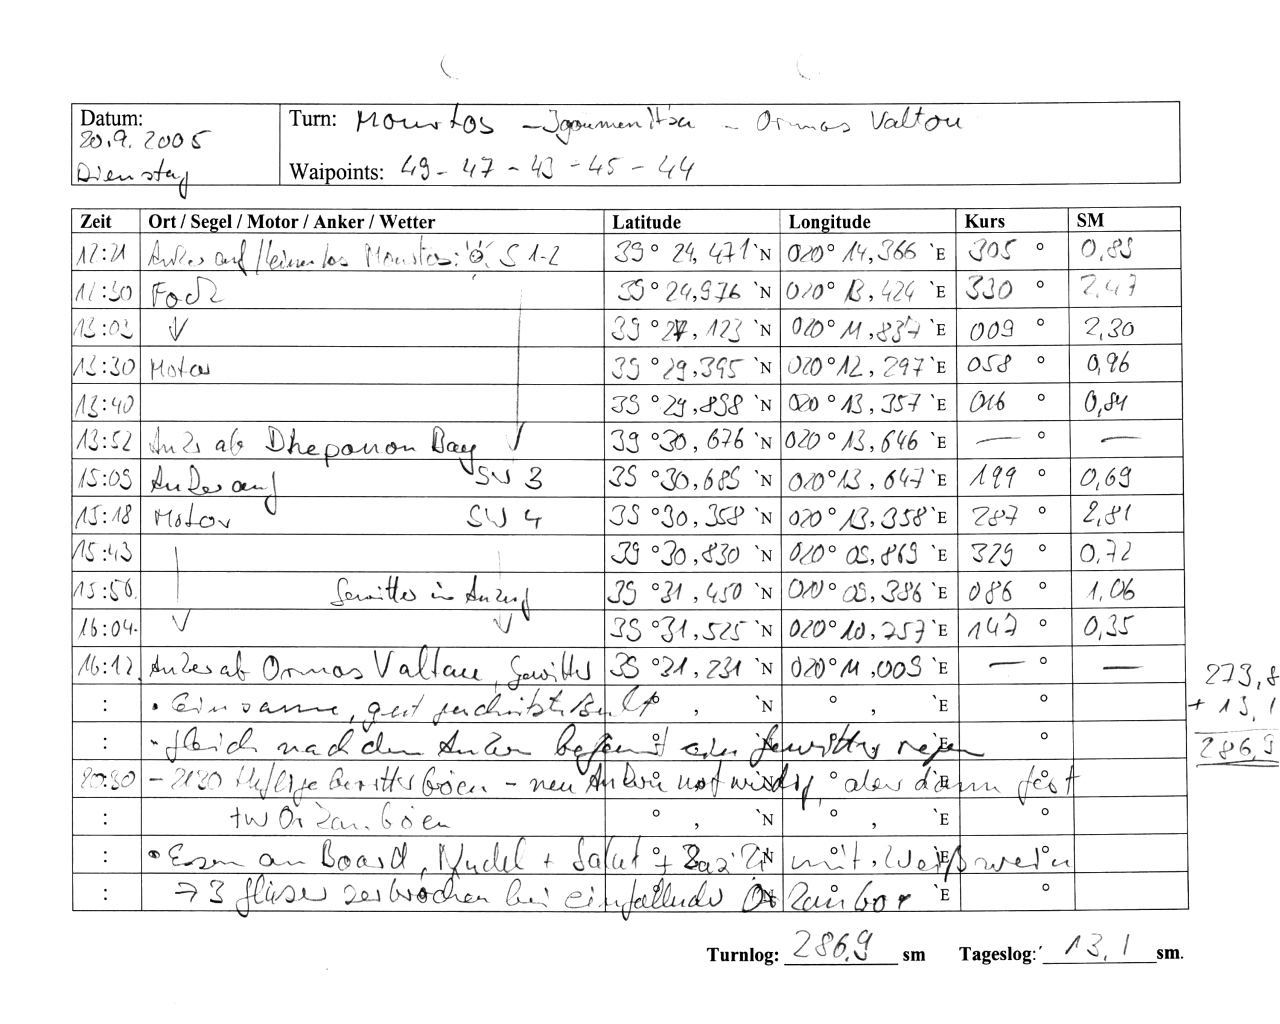 Datum: Turn: Mourtos - Igoumenitsa - Ormos Valtou
20.9.2005
Dienstag Waipoints: 49 - 47 - 43 - 45 - 44
Zeit Ort / Segel / Motor / Anker / Wetter Latitude Longitude Kurs SM
12:21 Anker auf Mourtos: S 1-2 39° 24,471 'N 020° 14,366 'E 305 ° 0,89
12:30 Fock 39° 24,976 'N 020° 13,424 'E 330 ° 2,47
13:03 ↓ 39° 27,123 'N 020° 11,837 'E 009 ° 2,30
13:30 Motor 39° 29,395 'N 020° 12,297 'E 058 ° 0,96
13:40 39° 29,898 'N 020° 13,357 'E 016 ° 0,84
13:52 Anker ab Dhepanon Bay 39° 30,676 'N 020° 13,646 'E — ° —
15:09 Anker auf SW 3 39° 30,689 'N 020° 13,647 'E 199 ° 0,69
15:18 Motor SW 4 39° 30,358 'N 020° 13,358 'E 287 ° 2,81
15:43 39° 30,830 'N 020° 09,869 'E 329 ° 0,72
15:56. Gewitter in Anzug 39° 31,450 'N 020° 09,386 'E 086 ° 1,06
16:04. 39° 31,525 'N 020° 10,757 'E 147 ° 0,35
16:12 Anker ab Ormos Valtou, Gewitter 39° 31,231 'N 020° 11,009 'E — ° —
273,8
: • Einsame, gut geschützte Bucht ° , 'N ° , 'E °
+ 13,1
: - gleich nach dem Ankern beginnt ein Gewitterregen °
286,9
20:30 - 2130 Heftige Gewitterböen - neu Ankern notwendig, aber dann fest
: Orkanböen ° , 'N ° , 'E °
: • Essen an Board, Nudel + Salat + mit Weißwein
: → 3 Gläser zerbrochen bei einfallender Orkanbör 'E °
Turnlog: 286,9 sm Tageslog: 13,1 sm.